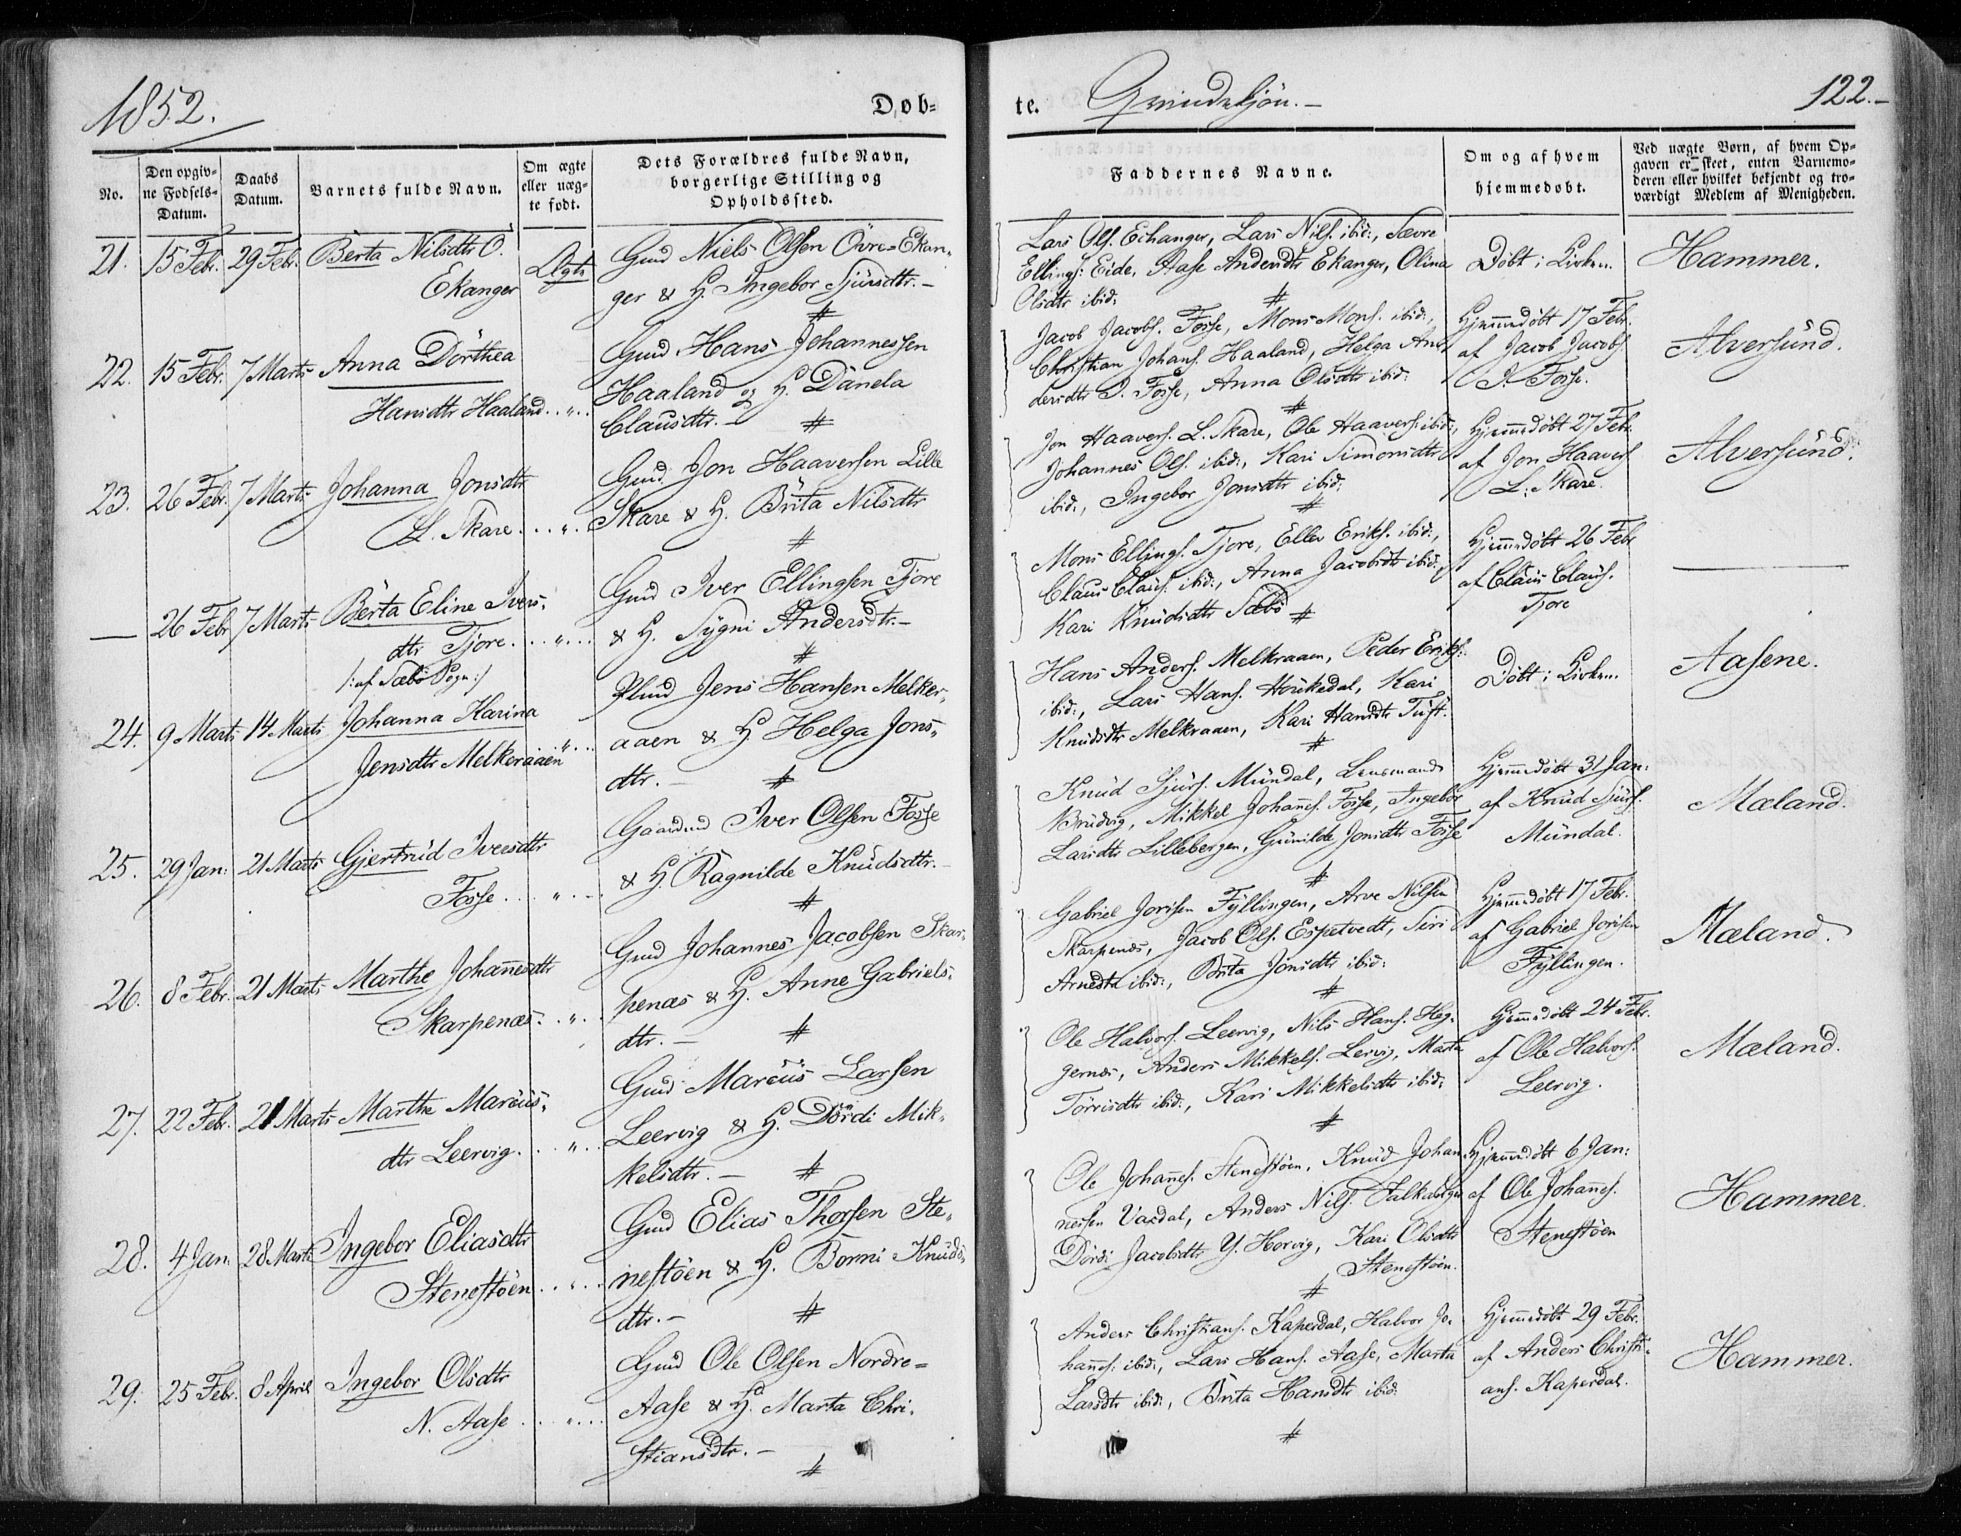 1852.
Døb-
te.
122.-
No.
Den opgiv-
ne Fødsels-
Datum.
Daabs
Datum.
Barnets fulde Navn.
Om ægte
eller uæg-
te født.
Dets Forældres fulde Navn,
borgerlige Stilling og
Opholdssted.
Faddernes Navne.
Om og af hvem
hjemmedøbt.
Ved uægte Børn, af hvem Op-
gaven er skeet, enten Barnemo-
deren eller hvilket bekjendt og tro-
værdigt Medlem af Menigheden.
21. 15 Febr. 29 Febr. Berta Nilsdtr Ö.
Ekanger
Ægte
Gmd Niels Olsen Övre-Ekan-
ger & H. Ingebor Sjürsdtr.-
Lars Ols. Echanger, Lars Nils. ibid:, Sævre
Ellings: Eide, Aase Andersdtr Ekanger, Olina
Olsdtr ibid:
Döbt i Kirken.
Hammer.
22. 15 Febr. 7 Marts Anna Dorthea
Hansdtr Haaland..".
Gmd Hans Johannessen
Haaland og H. Danela
Clausdtr.-
Jacob Jacobs. Fosse, Mons Mons. ibid:,
Christian Johans. Haaland, Helga An-
dersdtr I. Fosse, Anna Olsdtr ibid:
Hjemmedöbt 17 Febr.
af Jacob Jacobs.
I. Fosse.
Alversünd.
23. 26 Febr. 7 Marts Johanna Jonsdtr
L. Skare...".
Gmd. Jon Haaversen Lille
Skare & H. Brita Nilsdtr
Jon Haavers. L. Skare, Ole Haavers: ibid:,
Johannes Ols. ibid:, Kari Simonsdtr
ibid:, Ingebor Jonsdtr ibid:
Hjemmedöbt 27 Febr.
af Jon Haavers
L. Skare.
Alversünd.
— 26 Febr 7 Marts Berta Eline Ivers-
dtr Tjore...".
/: af Sæbö Sogn :/
Gmd Iver Ellingsen Tjore
& H. Sygni Andersdtr.-
Mons Ellings. Tjore, Eller Eriks. ibid:,
Claus Claus. ibid:, Anna Jacobsdtr ibid:,
Kari Knüdsdtr Sæbö
Hjemmedöbt 26 Febr
af Claus Claus.
Tjore
24. 9 Marts 14 Marts Johanna Karina
Jensdtr Melkeraaen"...
Jens Hansen Melker-
aaen & H Helga Jons-
dtr.-
Hans Anders. Melkraaen, Peder Eriks.
ibid:, Lars Hans. Kari
Knüdsdtr Melkraaen, Kari Hansdtr Tüft.
Döbt i Kirken..
Aasene.
25. 29 Jan: 21 Marts Gjertrüd Iversdtr
Fosse...".
Gaardmd Iver Olsen Fosse
& H. Ragnilde Knüdsdtr.-
Knüd Sjürs. Mündal, Lensmand
Brüdvig, Mikkel Johans. Fosse, Ingebor
Larsdtr Lillebergen, Günilde Jonsdtr Fosse
Hjemmedöbt 31 Jan:
af Knüd Sjürs.
Mündal.
Mæland.
26. 8 Febr. 21 Marts Marthe Johannesdtr
Skarpenæs..".
Gmd Johannes Jacobsen Skar-
penæs & H. Anne Gabriels-
dtr.-
Gabriel Jorisen Fyllingen, Arve Nilsen
Skarpenæs, Jacob Ols. Espetvedt, Siri
Arnedtr ibid:, Brita Jonsdtr ibid:
Hjemmedöbt 17 Febr.
af Gabriel Jorisen
Fyllingen.
Mæland.
27. 22 Febr. 21 Marts Marthe Marcüs-
dtr Leervig...".
Gmd Marcüs Larsen
Leervig & H. Dördi Mik-
kelsdtr.-
Ole Halvors. Leervig, Nils Hans. Heg-
gernæs, Anders Mikkels. Lervig, Marta
Törrisdtr ibid:, Kari Mikkelsdtr ibid:
Hjemmedöbt 24 Febr.
af Ole Halvors.
Leervig.
Mæland.
28. 4 Jan. 28 Marts Ingebor Eliasdtr
Stenestöen...".
Gmd Elias Thorsen Ste-
nestöen & H. Borni Knüds-
dtr.-
Ole Johans. Stenestöen, Knüd Johan-
nessen Vardal, Anders Nils. Falkanger
Dördi Jacobsdtr Y. Horvig, Kari Olsdtr
Stenestöen.
Hjemmedöbt 6 Jan:
af Ole Johans.
Stenestöen
Hammer.
29. 25 Febr. 8 April Ingebor Olsdtr
N. Aase...".
Gmd Ole Olsen Nordre-
Aase & H. Marta Chri-
stiansdtr.-
Anders Christians. Kaperdal, Halvor Jo-
hans. ibid:, Lars Hans. Aase, Marta
Larsdtr ibid:, Brita Hansdtr ibid:
Hjemmedöbt 29 Febr.
af Anders Christi-
ans. Kaperdal.
Hammer.